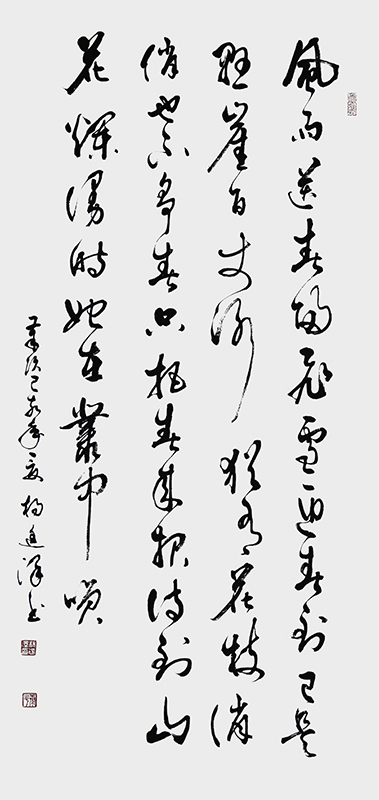 風雨送春歸飛雪迎春到已是
懸崖百丈冰猶有花枝俏
俏也不爭春只把春來報待到山
花爛漫時她在叢中咲
歲次己亥年夏楊進澤書